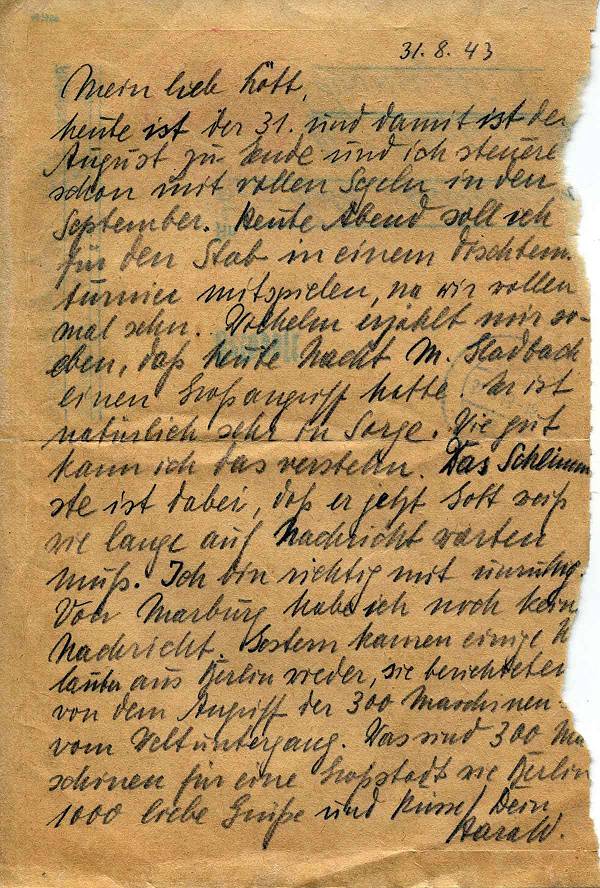 31. 8. 43
Mein lieb Lött,
heute ist der 31. und damit ist der
August zu Ende und ich steuere
schon mit vollen Segeln in den
September. Heute Abend soll ich
für den Stab in einem Tischten.
turnier mitspielen, na wir wollen
mal sehn. Wilhelm erzählt mir so-
eben, daß heute Nacht M. Gladbach
einen Großangriff hatte. Er ist
natürlich sehr in Sorge. Wie gut
kann ich das verstehn. Das Schlimm
ste ist dabei, daß er jetzt Gott weiß
wie lange auf Nachricht warten
muß. Ich bin richtig mit unruhig.
Von Marburg habe ich noch kein
Nachricht. Gestern kamen einige
lauber aus Berlin wieder, sie berichteten
von dem Angriff der 300 Maschinen
vom Weltuntergang. Was sind 300 Ma
schinen für eine Großstadt wie Berlin
1000 liebe Grüße und Küsse/ Dein
Harald.